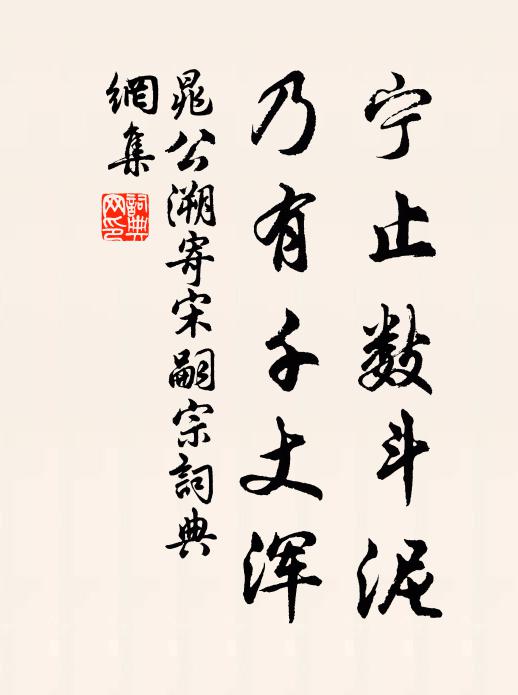 宁止数斗泥
乃有千丈浑
晁公溯寄宋嗣宗詞典
網集
詞典
网印